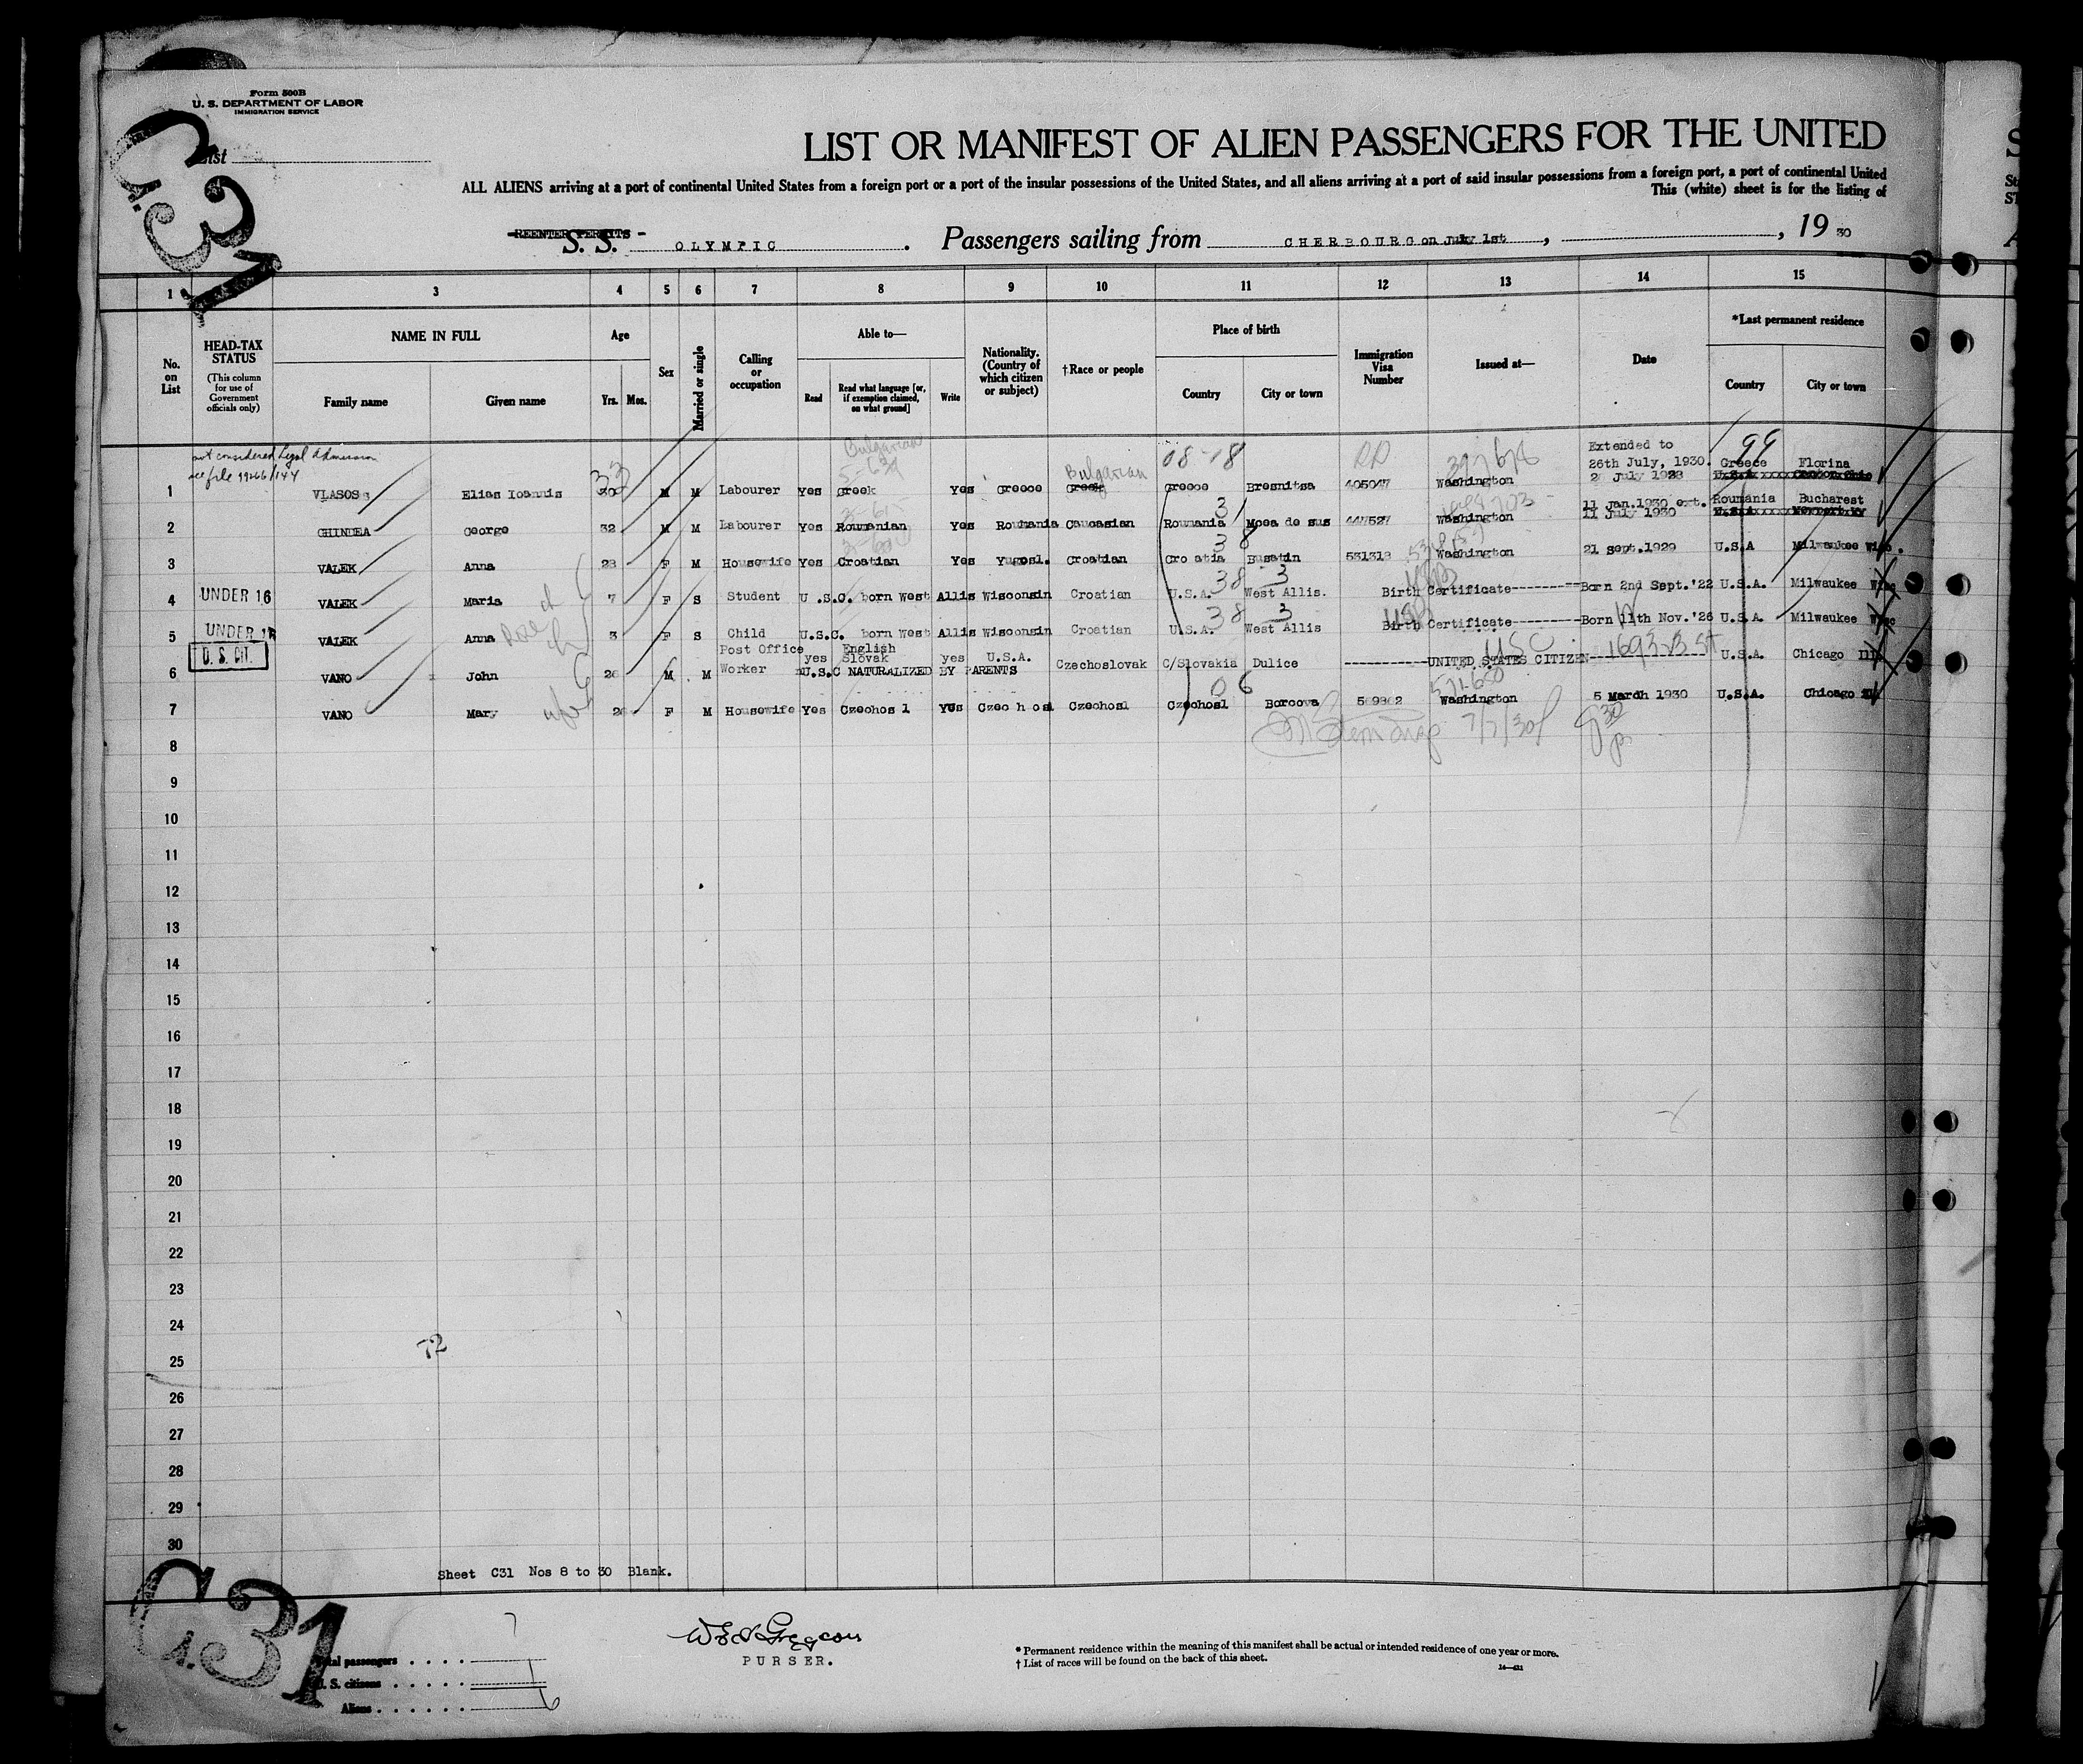 Form 500B
U. S. DEPARTMENT OF LABOR
IMMIGRATION SERVICE
C31
List
LIST OR MANIFEST OF ALIEN PASSENGERS FOR THE UNITED
ALL ALIENS arriving at a port of continental United States from a foreign port or a port of the insular possessions of the United States, and all aliens arriving at a port of said insular possessions from a foreign port, a port of continental United
This (white) sheet is for the listing of
REENTER PERMITS -
S. S. OLYMPIC . Passengers sailing from CHERBOURG on July 1st , , 19 30
1 3 4 5 6 7 8 9 10 11 12 13 14 15
No. on List
HEAD-TAX STATUS (This column for use of Government officials only)
NAME IN FULL
Family name Given name
Age
Yrs. Mos.
Sex
Married or single
Calling or occupation
Able to—
Read Read what language [or, if exemption claimed, on what ground] Write
Nationality. (Country of which citizen or subject)
†Race or people
Place of birth
Country City or town
Immigration Visa Number
Issued at—
Date
*Last permanent residence
Country City or town
not considered Legal Admission
Bulgarian 08-18 99 Extended to
26th July, 1930. Greece Florina
1 VLASOS Elias Ioannis 30 33 M M Labourer Yes Greek Yes Greece Greek Bulgarian Greece Bresnitsa 405047 Washington 397678 2 July 1928 U.S.A
11 Jan.1930 ext. Roumania Bucharest
2 GHINDEA George 32 M M Labourer Yes Roumanian Yes Roumania Caucasian Roumania 3 Moca de sus 447527 Washington 11 July 1930
3 VALEK Anna 28 F M Housewife Yes Croatian Yes Yugosl. Croatian Croatia 38 Busatin 531313 Washington 21 sept.1929 U.S.A Milwaukee Wisc.
UNDER 16
4 VALEK Maria 7 F S Student U.S.C. born West Allis Wisconsin Croatian U.S.A. 38 3 West Allis. Birth Certificate---------Born 2nd Sept.'22 U.S.A. Milwaukee Wisc
UNDER 16
5 VALEK Anna 3 F S Child U.S.C. born West Allis Wisconsin Croatian U.S.A. 38 3 West Allis Birth Certificate--------Born 11th Nov.'26 U.S.A. Milwaukee Wisc
U. S. CIT.
6 VANO John 26 M M Post Office Worker yes English Slovak yes U.S.A. Czechoslovak C/Slovakia Dulice ----------UNITED STATES CITIZEN USC U.S.A. Chicago Ill
U.S.C NATURALIZED BY PARENTS
7 VANO Mary F M Housewife Yes Czechosl Yes Czechosl Czechosl Czechosl 06 Borcova Washington 5 March 1930 U.S.A. Chicago Ill
7/7/30
8
9
10
11
12
13
14
15
16
17
18
19
20
21
22
23
24
72
25
26
27
28
29
30
Sheet C31 Nos 8 to 30 Blank.
C31
7
Total passengers
U. S. citizens 1
Aliens 6
PURSER.
* Permanent residence within the meaning of this manifest shall be actual or intended residence of one year or more.
† List of races will be found on the back of this sheet.